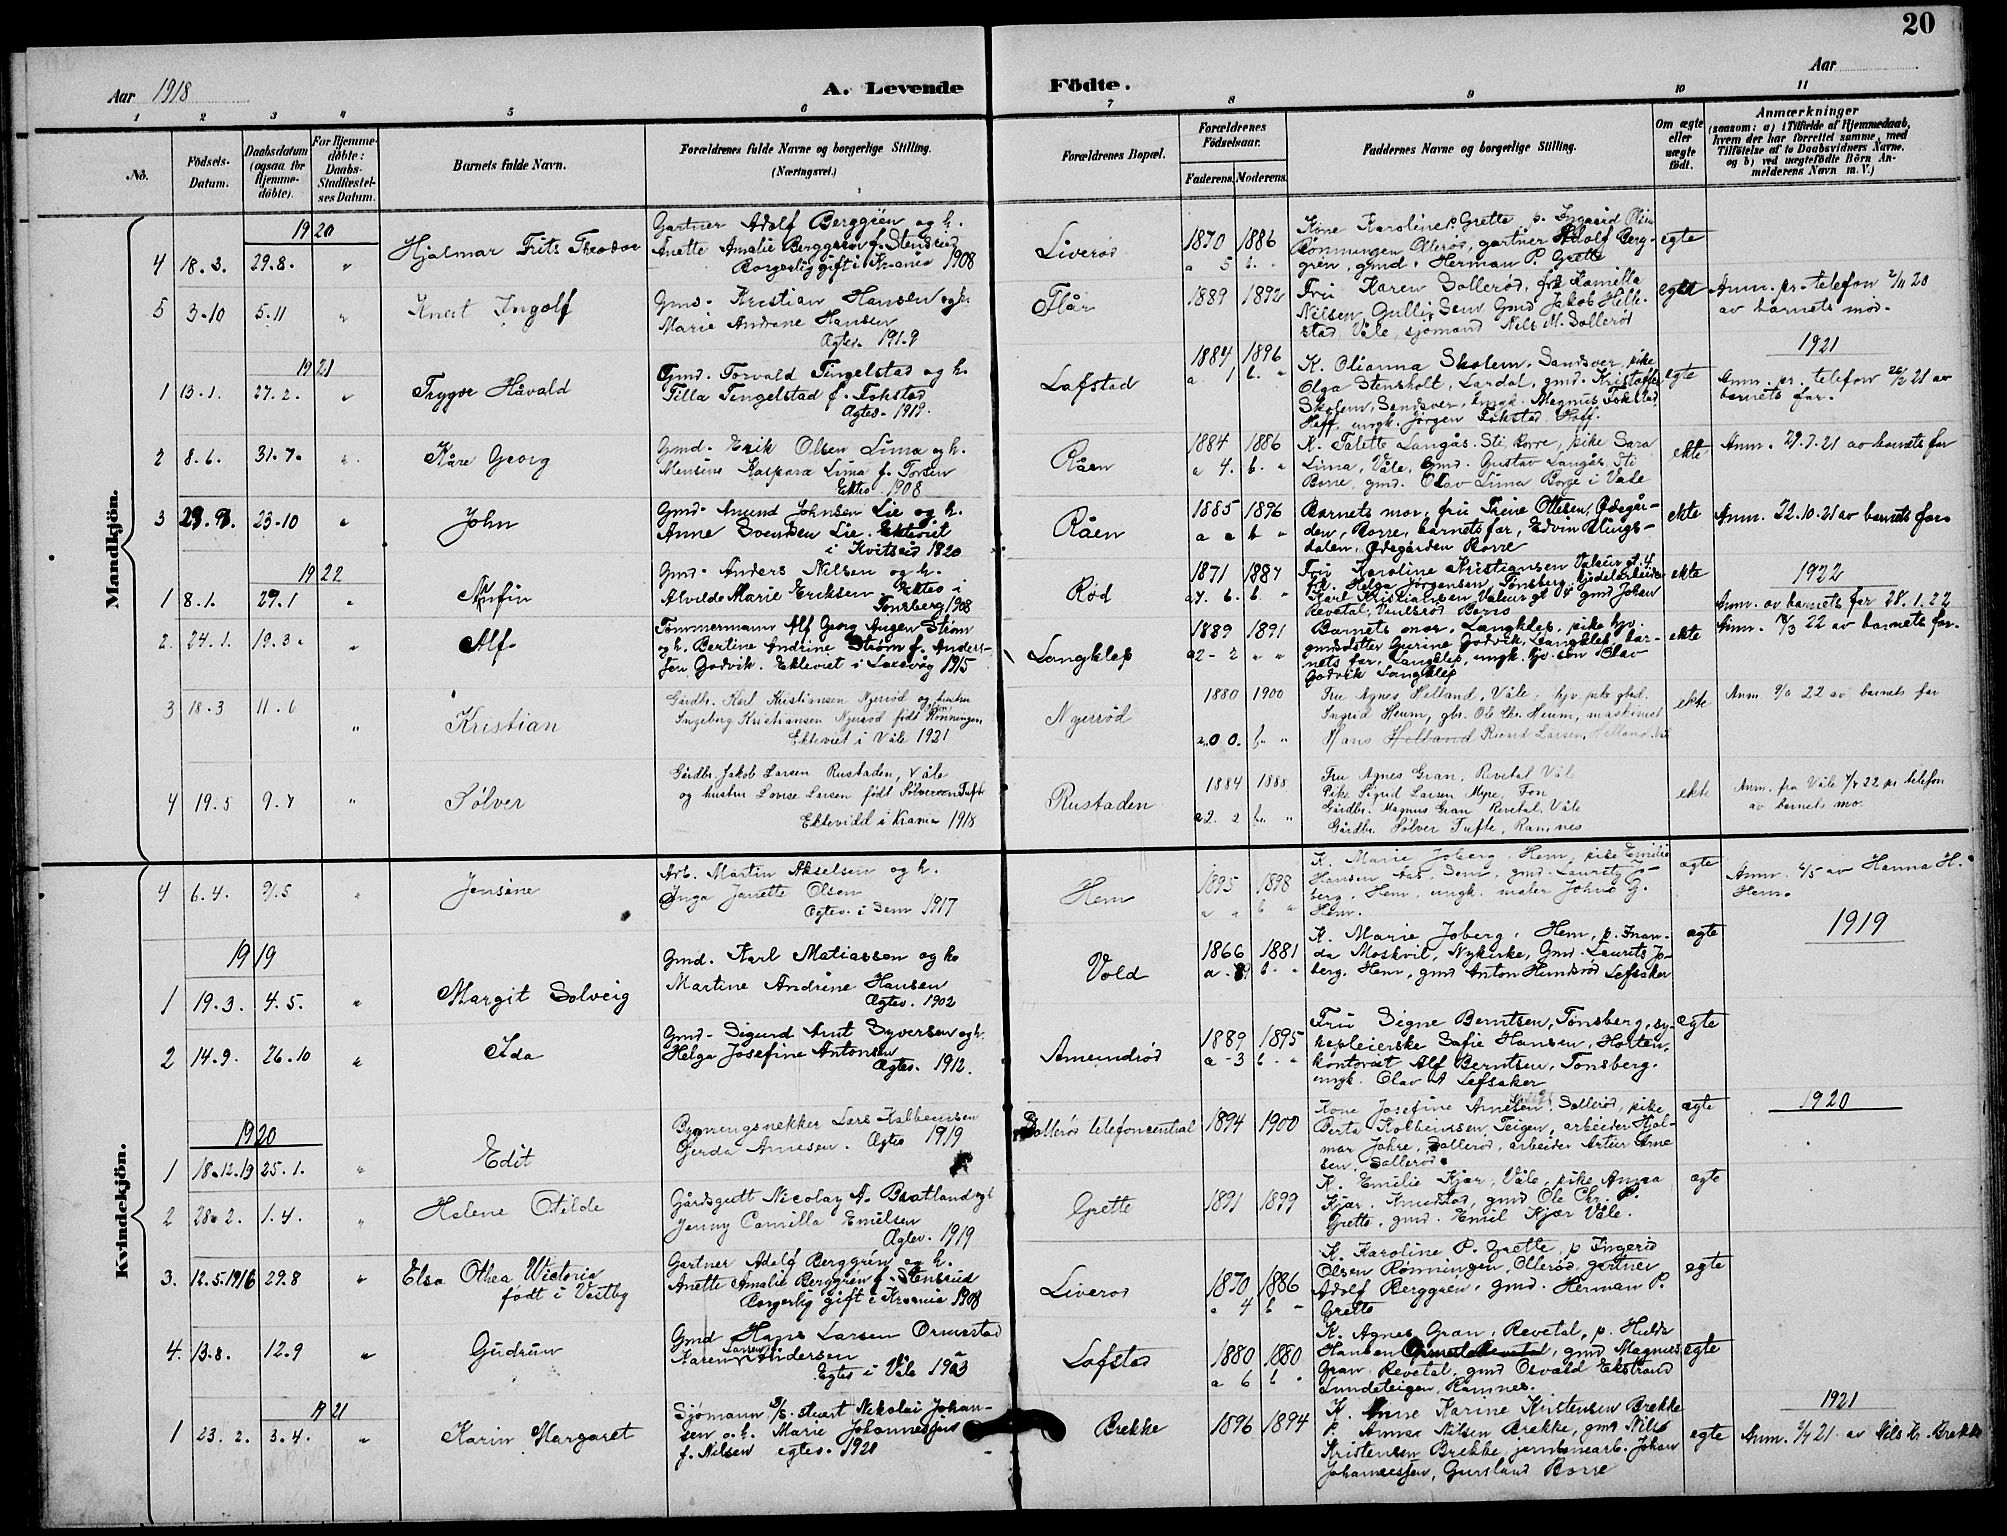 20
Aar 1918
A. Levende Födte.
Aar
1 2 3 4 5 6 7 8 9 10 11
Nô.
Födsels-Datum.
Daabsdatum (ogsaa for Hjemmedöbte).
For Hjemmedöbte: Daabs-Stadfæstelses Datum.
Barnets fulde Navn.
Forældrenes fulde Navne og borgerlige Stilling. (Næringsvei.)
Forældrenes Bopæl.
Forældrenes Födselsaar.
Faderens. Moderens.
Faddernes Navne og borgerlige Stilling.
Om ægte eller uægte födt.
Anmærkninger (saasom: a) i Tilfælde af Hjemmedaab, hvem der har forrettet samme, med Tilföielse af to Daabsvidners Navne. og b) ved uægtefödte Börn Anmelderens Navn m. V.)
Mandkjön.
1920
4 18.3. 29.8. " Hjalmar Frits Theodor
Gartner Adolf Berggrén og h.
Anette Amalie Berggrén f. Stensrud
Borgerlig gift i Krania 1908
Liverød
1870 1886
a 5 b. "
Kone Karoline P. Grette p. Ingerid Olsen
Rønningen Ollerød, gartner Adolf Berg-
gren, gmd. Herman P. Grette
egte
5 3-10 5.11 " Knut Ingolf
Gmd. Kristian Hansen og h.
Marie Andrene Hansen
Ægtev. 1919
Flår
1889 1892
Fru Karen Sollerød, frk Kamilla
Nilsen, Gulli, Sem Gmd Jakob Helle-
stad, Våle, sjømand Nils M. Sollerød
egte
Anm. pr. telefon 2/11 20
av barnets mor.
1921
1 13.1. 27.2. " Trygve Håvald
Gmd. Torvald Tingelstad og h.
Tilla Tingelstad f. Fokstad
Ægtev. 1919.
Lofstad
1884 1896
a 1 b. "
K. Olianna Skolem, Sandsver, pike
Olga Stensholt, Lardal, gmd. Kristoffer
Skolem, Sandsver, ungk. Magnus Fokstad,
Hoff, ungk. Jørgen Fokstad, Hoff.
egte
1921
Anm. pr. telefon 26/2 21 av
barnets far.
2 8.6. 31.7. " Kåre Georg
Gmd. Erik Olsen Lima og h.
Mensine Kaspara Lima f. Torsen
Ektev. 1908
Råen
1884 1886
a 4. b. "
K. Talette Langås, Sti Borre, pike Sara
Lima, Våle, Gmd. Gustav Langås, Sti
Borre, gmd. Olav Lima Borge i Våle
ekte
Anm. 29.7.21 av barnets far
3 23-10 " John
Gmd. Amund Johnsen Lie og h.
Anne Svendsen Lie. Ekteviet
i Kvitseid 1920
Råen
1885 1896
a a b "
Barnets mor, fru Trine Ottesen, Ødegår-
den, Borre, barnets far, Edvin Blings-
dalen, Ødegården Borre
ekte
Anm. 22.10.21 av barnets far
1922
1 8.1. 29.1 " Anfin
Gmd. Anders Nilsen og h.
Alvilde Marie Eriksen Ektev i
Tønsberg 1908
Rød
1871 1887
b. "
Fru Karoline Kristiansen Valurgt. 4.
frk. Helga Jørgensen, Tønsberg,
Karl Kristiansen Valurgt 4 gmd Johan
Revetal, Borre
ekte
1922
Anm. av barnets far 28.1.22
2. 24.1. 19.3. " Alf
Tømmermann Alf Georg Strøm
og h. Bertine Andrine Strøm f. Anders-
sen Godvik. Ekteviet i Laksevåg 1915
Langklep
1889 1891
a2 - 2 " "
Barnets mor, Langklep, pike hjv.
gmdsdtter Gurine Godvik Langklep, bar-
nets far, Langklep, ungk. hjv. søn Olav
Godvik Langklep
ekte
Anm. 22 av barnets far.
3 18.3 11.6 " Kristian
Gårdbr. Karl Kristiansen Nyerrød og hustru
Ingeborg Kristiansen Nyerrød født Rønningen
Ekteviet i Våle 1921
Nyerrød
1880 1900
a. 0 0. b. "
Fru Agnes Helland, Våle, hjv. pike gbd.
Ingrid Heum, gbr. Ole Chr. Heum, maskinist
Hans Helland Ricard Larsen, Helland
ekte
Anm. 9/6 22 av barnets far
4 19.5 9.7 " Sølver
Gårdbr. Jakob Larsen Rustaden, Våle
og hustru Lovise Larsen født Sølversen Tufte
Ektevidd i Krania 1918
Rustaden
1884 1888
a 2. 2 b. "
Fru Agnes Gran, Revetal Våle
Pike Sigrid Larsen Myre, Fon
Gårdbr. Magnus Gran Revetal, Våle
Gårdbr. Sølver Tufte, Ramnes
ekte
Anm. fra Våle 7/7 22 pr telefon
av barnets mo.
Kvindekjön.
4 6.4. 9/.5 " Jensine
Arb. Martin Akselsen og h.
Inga Janette Olsen
Ægtev. i Sem 1917
Hem
1895 1898
a a b "
K. Marie Joberg, Hem, pike Emilie
Hansen Aas, Sem, gmd. Laurits Jo-
berg, Hem, ungk. maler Johns G.
Hem.
ægte
Anm. 4/5 av Hanna H.
Hem.
1919
1919
1 19.3. 4.5. " Margit Solveig
Gmd. Karl Matiassen og h.
Martine Andrine Hansen
Ægtev. 1902
Vold
1866 1881
a - 8 b. "
K. Marie Joberg, Hem, p. Inan-
da Moskvil, Nykirke, Gmd. Laurits Jo-
berg, Hem, gmd Anton Hundsrød Lefsaker
ægte
2 14.9. 26.10 " Ida
Gmd. Sigurd Arnt Syversen og h.
Helga Josefine Antonsen
Ægtev. 1912.
Amundrød
1889 1895
a - 3 b. "
Fru Signe Berntsen, Tønsberg, sy-
kepleierske Sofie Hansen, Horten,
kontorist Alf Berntsen, Tønsberg.
ungk. Olav A Lefsaker
ægte
1920
1 18.12.19 25.1. " Edit
Bygningsnekker Lars Kolbeinsen
Gerda Arnesen. Ægtev 1919
Sollerød telefoncentral
1894 1900
Kone Josefine Arnesen, Sollerød, pike
Berta Kolbeinsen Teigen, arbeider Hjal-
mar Johre, Sollerød, arbeider Artur Arne-
sen, Sollerød.
ægte
1920
2 28.2. 1.4. " Helene Otilde
Gårdsgutt Nicolay A. Bratland og h
Jenny Camilla Emilsen
Ægtev. 1919
Grette
1891 1899
K. Emilie Kjær, Våle, pike Anna
Kjær, Knudstad, gmd Ole Chr. P.
Grette, gmd. Emil Kjær Våle.
ægte
3. 12.5.1916 29.8 " Elsa Othea Wictoria
født i Vestby
Gartner Adolf Berggrén og h.
Anette Amalie Berggrén f. Stensrud
Borgerlig gift i Krania 1908
Liverød
1870 1886
a 4 b "
K. Karoline P. Grette, p Ingerid
Olsen Rønningen, Ollerød, gartner
Adolf Berggrén, gmd. Herman P.
Grette
ægte
4. 13.8. 12.9 " Gudrun
Gmd Hans Larsen Ormestad
Karen Larsen f. Andersen
Egtev i Våle 1903
Lofstad
1880 1880
a 6 b "
K. Agnes Gran, Revetal, p. Hulda
Hansen, gmd Magnus
Gran, Revetal, gmd Osvald Ekstrand
Lundeteigen, Ramnes.
ægte
1921
1 23.2. 3.4. " Karin Margaret
Sjømann Nikolai Johan-
sen o.h. Marie Johannessen
f. Nilsen egtev. 1920
Brekke
1896 1894
K. Anne Karine Kristensen Brekke
p. Anna Nilsen Brekke, gmd Nils
Kristensen Brekke, Johan
Johannessen, Borre
egte
1921
Anm. 2/4 21 av Nils Kr. Brekke